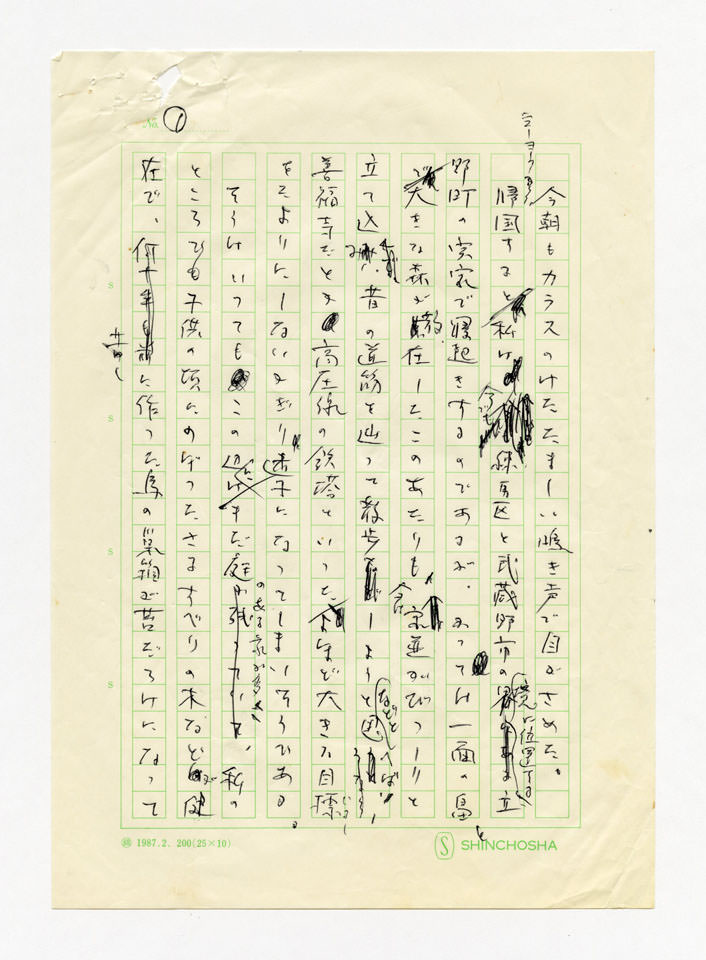 No. 1
今朝もカラスのけたたましい鳴き声で目がさめた。
ニューヨークから
帰国すると私は今でも練馬区と武蔵野市の境に位置する立
野町の実家で寝起きするのであるが、かつては一面の畠と
大きな森が散在したこのあたりも今は家並がびっしりと
立て込み、昔の道筋を辿って散歩しようなどと思えば、
善福寺だとか高圧線の鉄塔といった大きな目標
をたよりにしないかぎり迷子になってしまいそうである。
そうはいってもこの辺にはまだ庭のある家が多く、私の
ところでも子供の頃にのぼったさるすべりの木などが健
在で、昔し作った鳥の巣箱が苔だらけになって
1987.2. 200(25×10)
S SHINCHOSHA